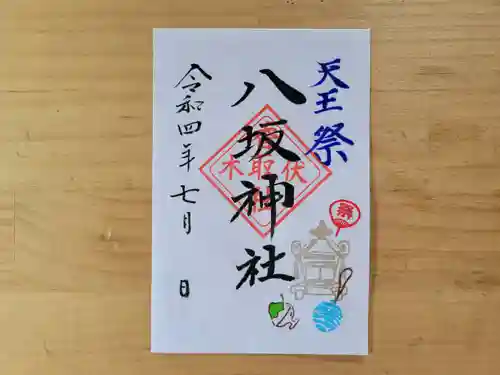 天王祭
八坂神社
伏取木
祭
令和四年七月 日